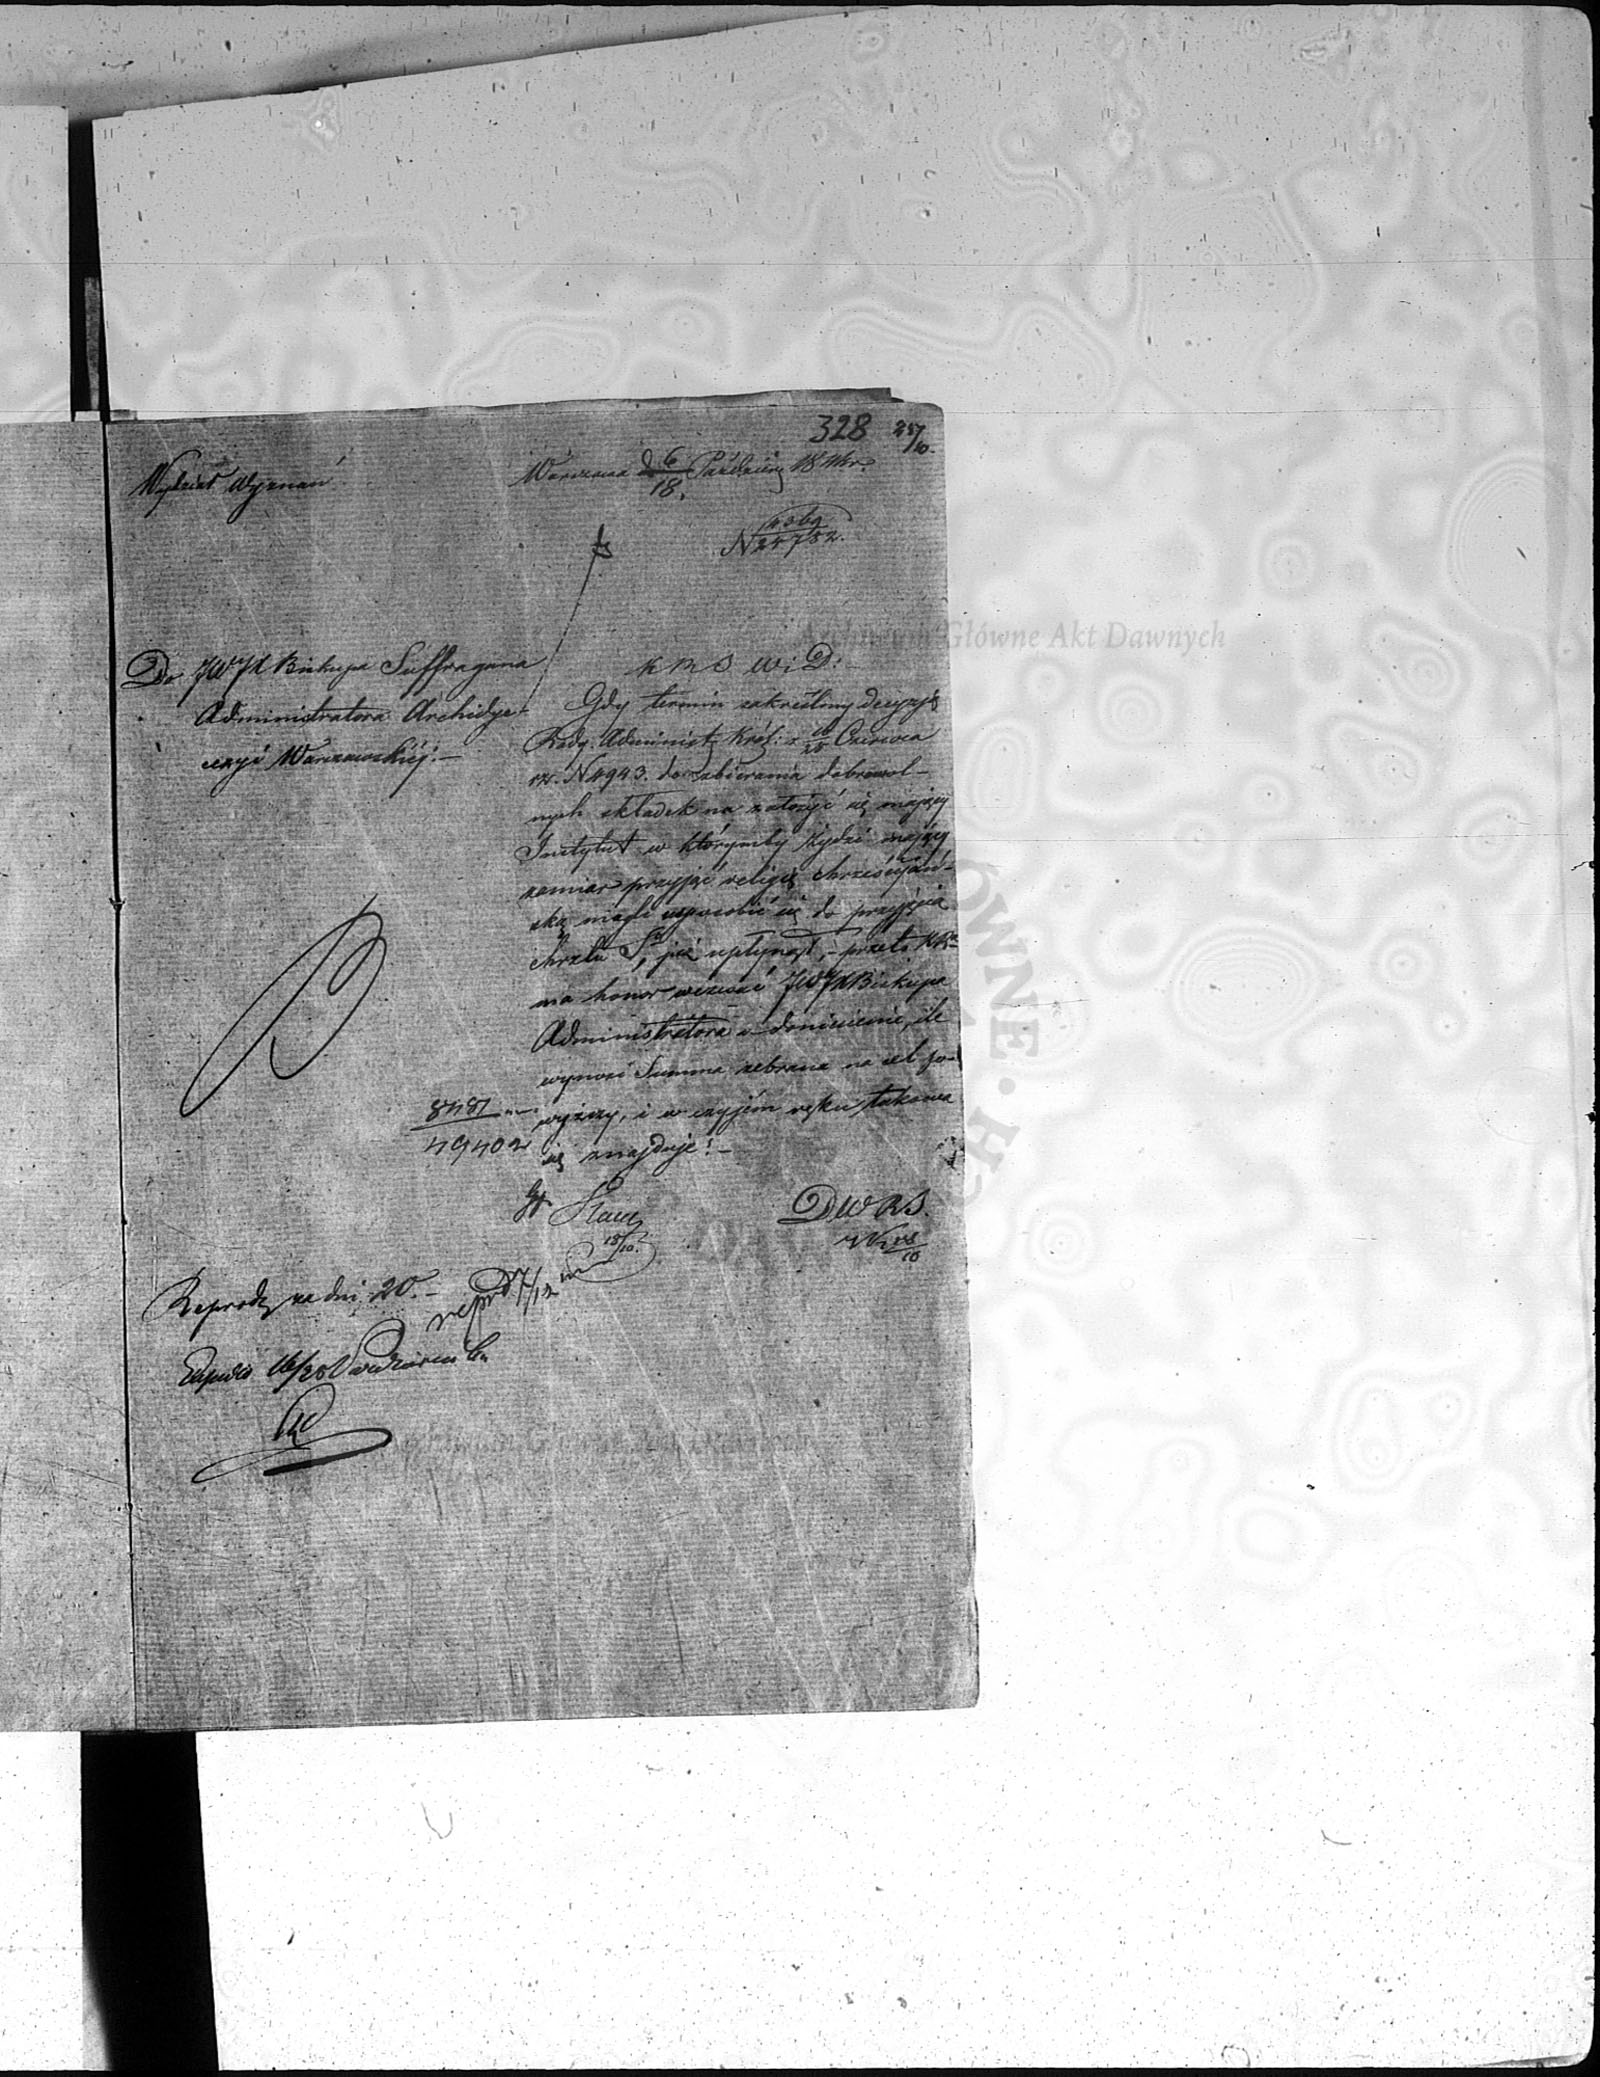 328 25/10.
Wydział Wyznań
Warszawa d 6/18. Paździer 18 r.
N 24752.
Do JWJX Biskupa Suffragana
Administratora Archidye-
cezyi Warszawskiéj.—
K R S W i D:
Gdy termin zakréślony decyzyą
Rady Administ Król: z /28 Czerwca
rz. N 4943. do zbierania dobrowol-
nych składek na założyć się mający
Instytut w którymby Żydzi mający
zamiar przyjąć religię chrześcijań-
ską mogli usposobić się do przyjęcia
chrztu Sgo, już upłynął, – przeto KR
ma honor wezwać JWJX Biskupa
Administratora o doniesienie, ile
wynosi Summa zebrana na cel po-
wyższy, i w czyjém ręku takowa
się znajduje! —
8481
49402
18/10.
D W R S.
18/10
Reprod za dni 20. —
repr d 7/12
16/28 Października